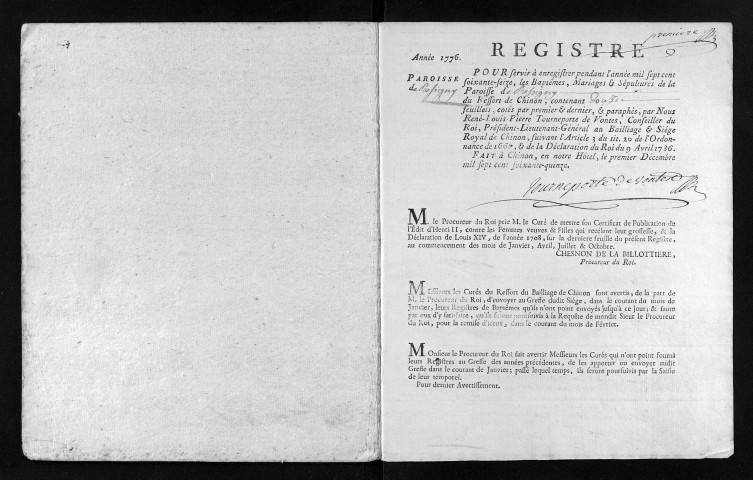 premiere
REGISTRE
Année 1776.
PAROISSE
de Rasigny
POUR servir à enregistrer pendant l'année mil sept cent
soixante-seize, les Baptêmes, Mariages & Sépultures de la
Paroisse de Rasigny
du Ressort de Chinon; contenant douze
feuillets, cotés par premier & dernier, & paraphés, par Nous
René-Louis-Pierre Tourneporte de Vontes, Conseiller du
Roi, Président-Lieutenant-Général au Bailliage & Siége
Royal de Chinon, suivant l'Article 3 du tit. 20 de l'Ordon-
nance de 1667, & de la Déclaration du Roi du 9 Avril 1736.
FAIT à Chinon, en notre Hôtel, le premier Décembre
mil sept cent soixante-quinze.
Tourneporte de Vontes
M. le Procureur du Roi prie M. le Curé de mettre son Certificat de Publication de
l'Édit d'Henri II, contre les Femmes veuves & Filles qui recelent leur grossesse, & la
Déclaration de Louis XIV, de l'année 1708, sur la derniere feuille du présent Registre,
au commencement des mois de Janvier, Avril, Juillet & Octobre.
CHESNON DE LA BILLOTTIERE,
Procureur du Roi.
Messieurs les Curés du Ressort du Bailliage de Chinon sont avertis, de la part de
M. le Procureur du Roi, d'envoyer au Greffe dudit Siége, dans le courant du mois de
Janvier, leurs Registres de Baptêmes qu'ils n'ont point envoyés jusqu'à ce jour; & faute
par eux d'y satisfaire, qu'ils seront poursuivis à la Requête de mondit Sieur le Procureur
du Roi, pour la remise d'iceux, dans le courant du mois de Février.
Monsieur le Procureur du Roi fait avertir Messieurs les Curés qui n'ont point fourni
leurs Registres au Greffe des années précédentes, de les apporter ou envoyer audit
Greffe dans le courant de Janvier; passé lequel temps, ils seront poursuivis par la Saisie
de leur temporel.
Pour dernier Avertissement.